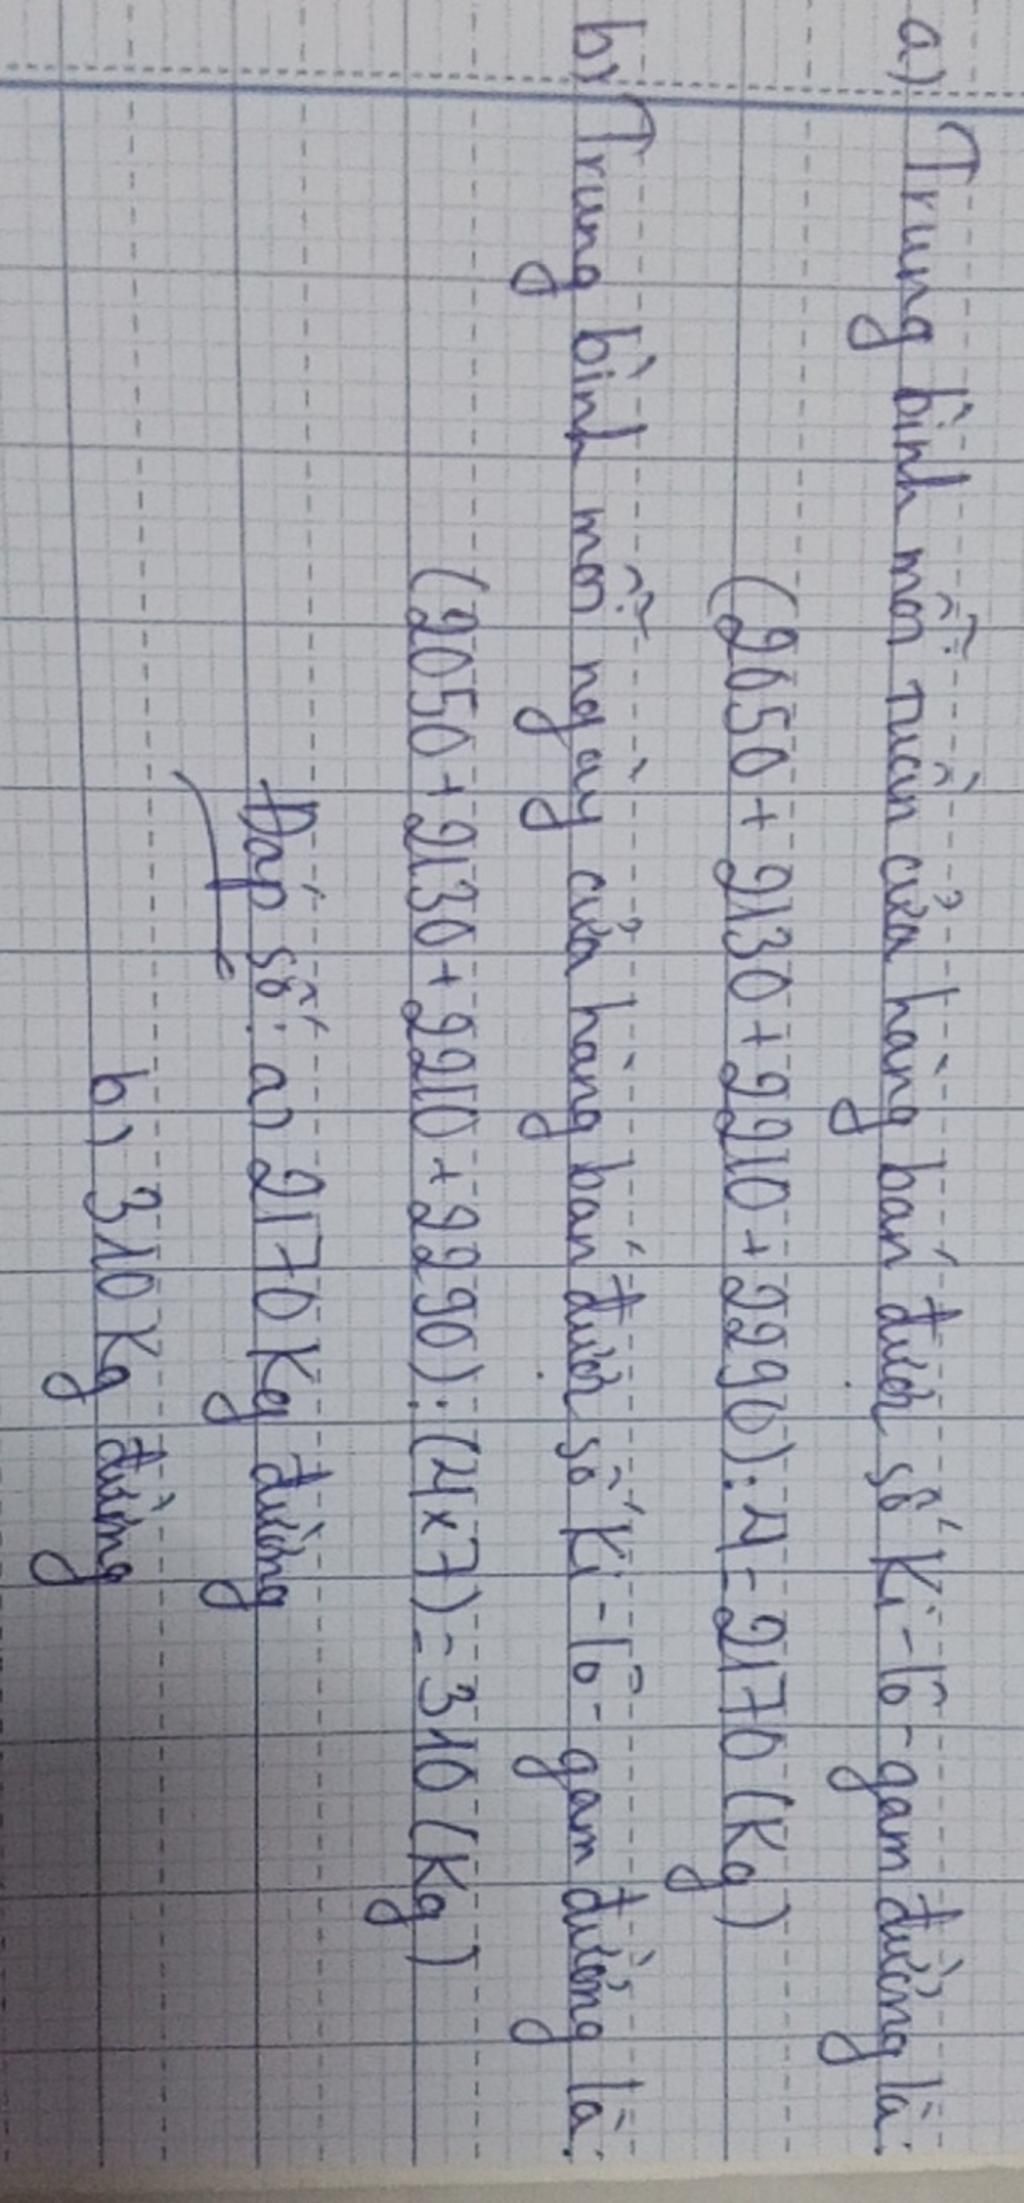 a) Trung bình mỗi tuần cửa hàng bán được số Ki-lô-gam đường là:
(2050 + 2130 + 2210 + 2290) : 4 = 2170 (Kg)
b) Trung bình mỗi ngày cửa hàng bán được số Ki-lô-gam đường là:
(2050 + 2130 + 2210 + 2290) : (4 x 7) = 310 (Kg)
Đáp số: a) 2170 Kg đường
b) 310 Kg đường